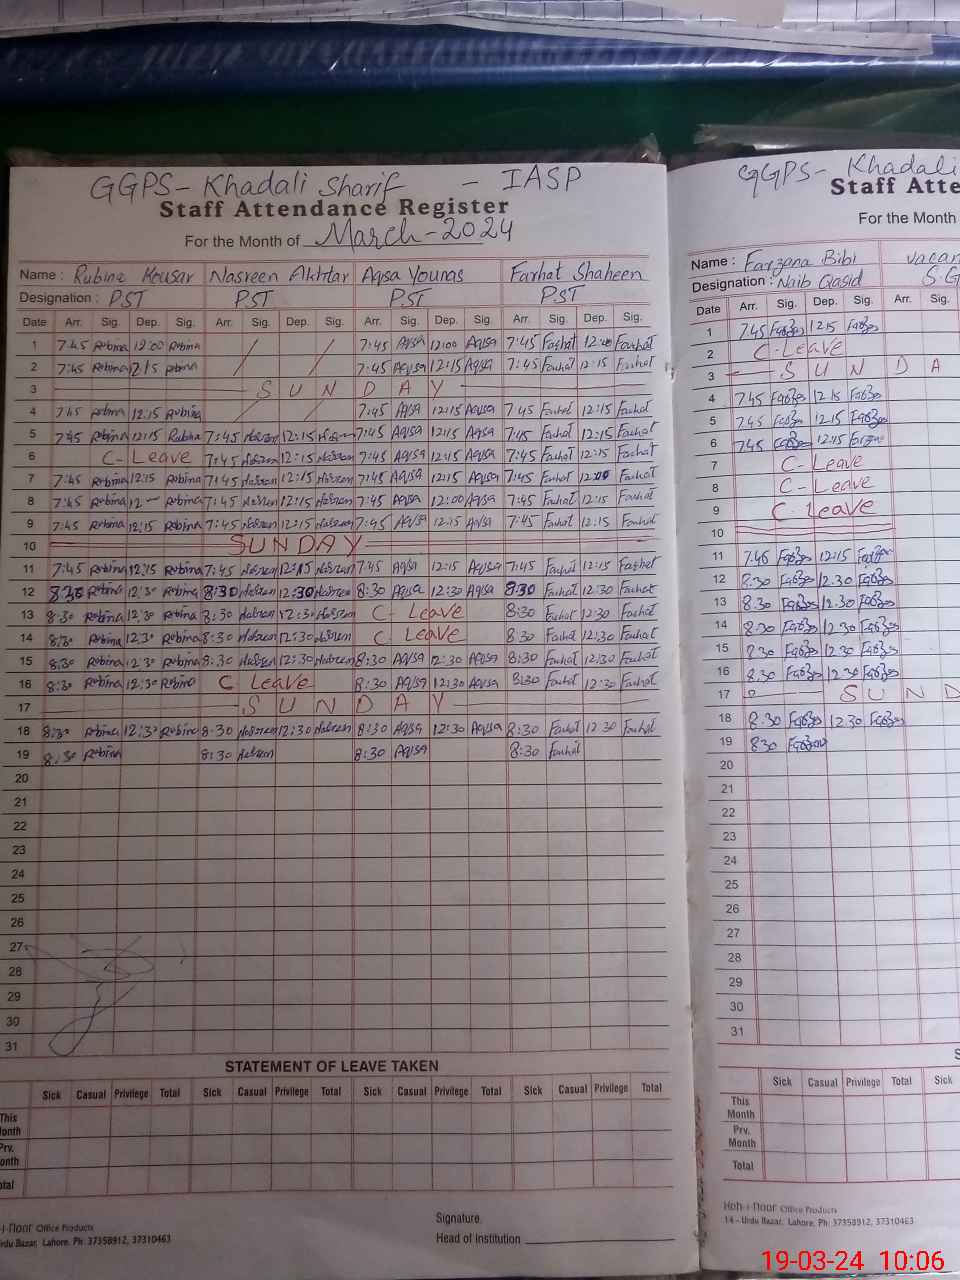 GGPS- Khadali Sharif - IASP
Staff Attendance Register
For the Month of March-2024
Name : Rubina Kousar Nasreen Akhtar Aqsa Younas Farhat Shaheen
Designation : PST PST PST PST
Date Arr. Sig. Dep. Sig. Arr. Sig. Dep. Sig. Arr. Sig. Dep. Sig. Arr. Sig. Dep. Sig.
1 7:45 Rubina 12:00 Rubina / / 7:45 Aqsa 12:00 Aqsa 7:45 Farhat Farhat
2 7:45 Rubina 12:15 Rubina 7:45 Aqsa 12:15 Aqsa 7:45 Farhat 12:15 Farhat
3 SUNDAY
4 7:45 Rubina 12:15 Rubina / / 7:45 Aqsa 12:15 Aqsa 7:45 Farhat 12:15 Farhat
5 7:45 Rubina 12:15 Rubina 7:45 Nasreen 12:15 Nasreen 7:45 Aqsa 12:15 Aqsa 7:45 Farhat 12:15 Farhat
6 C- Leave 7:45 Nasreen 12:15 Nasreen 7:45 Aqsa 12:15 Aqsa 7:45 Farhat 12:15 Farhat
7 7:45 Rubina 12:15 Rubina 7:45 Nasreen 12:15 Nasreen 7:45 Aqsa 12:15 Aqsa 7:45 Farhat Farhat
8 7:45 Rubina 12 — Rubina 7:45 Nasreen 12:15 Nasreen 7:45 Aqsa 12:00 Aqsa 7:45 Farhat 12:15 Farhat
9 7:45 Rubina 12:15 Rubina 7:45 Nasreen 12:15 Nasreen 7:45 Aqsa 12:15 Aqsa 7:45 Farhat 12:15 Farhat
10 SUNDAY
11 7:45 Rubina 12:15 Rubina 7:45 Nasreen 12:15 Nasreen 7:45 Aqsa 12:15 Aqsa 7:45 Farhat 12:15 Farhat
12 8:30 Rubina 12:30 Rubina 8:30 Nasreen 12:30 Nasreen 8:30 Aqsa 12:30 Aqsa 8:30 Farhat 12:30 Farhat
13 8:30 Rubina 12:30 Rubina 8:30 Nasreen 12:30 Nasreen C- Leave 8:30 Farhat 12:30 Farhat
14 8:30 Rubina 12:30 Rubina 8:30 Nasreen 12:30 Nasreen C- Leave 8:30 Farhat 12:30 Farhat
15 8:30 Rubina 12:30 Rubina 8:30 Nasreen 12:30 Nasreen 8:30 Aqsa 12:30 Aqsa 8:30 Farhat 12:30 Farhat
16 8:30 Rubina 12:30 Rubina C Leave 8:30 Aqsa 12:30 Aqsa 8:30 Farhat 12:30 Farhat
17 SUNDAY
18 8:30 Rubina 12:30 Rubina 8:30 Nasreen 12:30 Nasreen 8:30 Aqsa 12:30 Aqsa 8:30 Farhat 12:30 Farhat
19 8:30 Rubina 8:30 Nasreen 8:30 Aqsa 8:30 Farhat
20
21
22
23
24
25
26
27
28
29
30
31
STATEMENT OF LEAVE TAKEN
Sick Casual Privilege Total Sick Casual Privilege Total Sick Casual Privilege Total Sick Casual Privilege Total
This
onth
Prv.
onth
otal
-i-noor Office Products
rdu Bazar, Lahore. Ph: 37358912, 37310463
Signature.
Head of Institution
GGPS- Khadali
Staff Atte
For the Month
Name : Farzana Bibi vacan
Designation : Naib Qasid S.G
Date Arr. Sig. Dep. Sig. Arr. Sig.
1 7.45 12 15
2 C-Leave
3 SUNDA
4 7.45 12 15
5 7.45 12.15
6 7.45 12.15
7 C-Leave
8 C-Leave
9 C-Leave
10
11 7.45 12:15
12 8:30 12.30
13 8.30 12.30
14 8.30 12.30
15 12.30
16 8.30 12.30
17 SUND
18 8.30 12.30
19 830
20
21
22
23
24
25
26
27
28
29
30
31
S
Sick Casual Privilege Total Sick
This
Month
Prv.
Month
Total
Koh-i-noor Office Products
14 - Urdu Bazar, Lahore. Ph: 37358912, 37310463
19-03-24 10:06